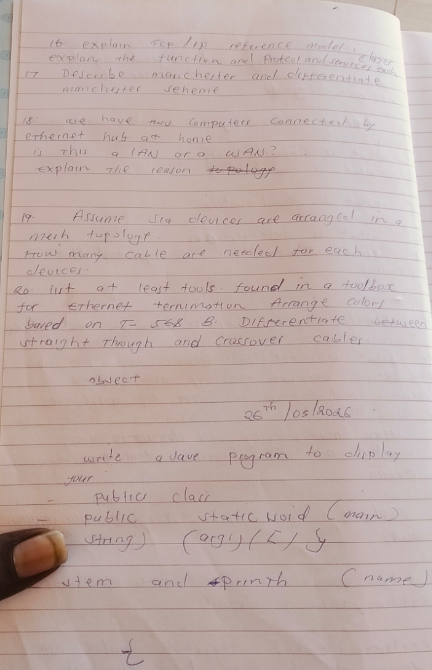 16 explain TCP/IP reference model,
explain the function and Protcol and services each layer
17 Describe manchester and differentiate
manchester scheme
18 we have two computers connected by
ethernet hub at home
is this a LAN or a WAN?
explain the reason topology
19 Assume six devices are arranged in a
mesh topology
How many cable are needed for each
devices.
20 list at least tools found in a toolbox
for Ethernet termimotion Arrange colors
based on T- 568 B. Differentiate between
straight Through and Crossover cables
object
26th /05/2026
write a Jave program to display
your
- public class
- public static void (main)
string) (args) [ ] }
stem and printh (name)
{